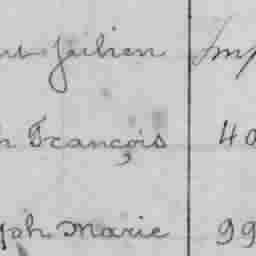 Julien Imp
François 40
Marie 99